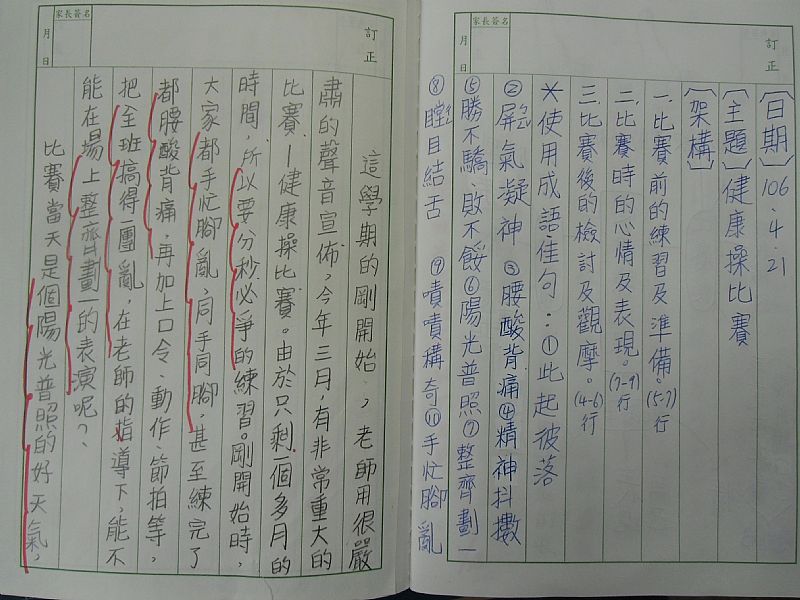 家長簽名
月
日
訂正
〔日期〕106．4．21
〔主題〕健康操比賽
〔架構〕
一、比賽前的練習及準備。(5-7)行
二、比賽時的心情及表現。(7-9)行
三、比賽後的檢討及觀摩。(4-6)行
＊使用成語佳句：①此起彼落
②屏氣凝神 ③腰酸背痛④精神抖擻
⑤勝不驕、敗不餒⑥陽光普照⑦整齊劃一
⑧瞠目結舌 ⑨嘖嘖稱奇⑪手忙腳亂
家長簽名
月
日
訂正
這學期的剛開始，老師用很嚴
肅的聲音宣佈，今年三月，有非常重大的
比賽—健康操比賽。由於只剩一個多月的
時間，所以要分秒必爭的練習。剛開始時，
大家都手忙腳亂，同手同腳，甚至練完了
都腰酸背痛，再加上口令、動作、節拍等，
把全班搞得一團亂，在老師的指導下，能不
能在場上整齊劃一的表演呢？
比賽當天是個陽光普照的好天氣，